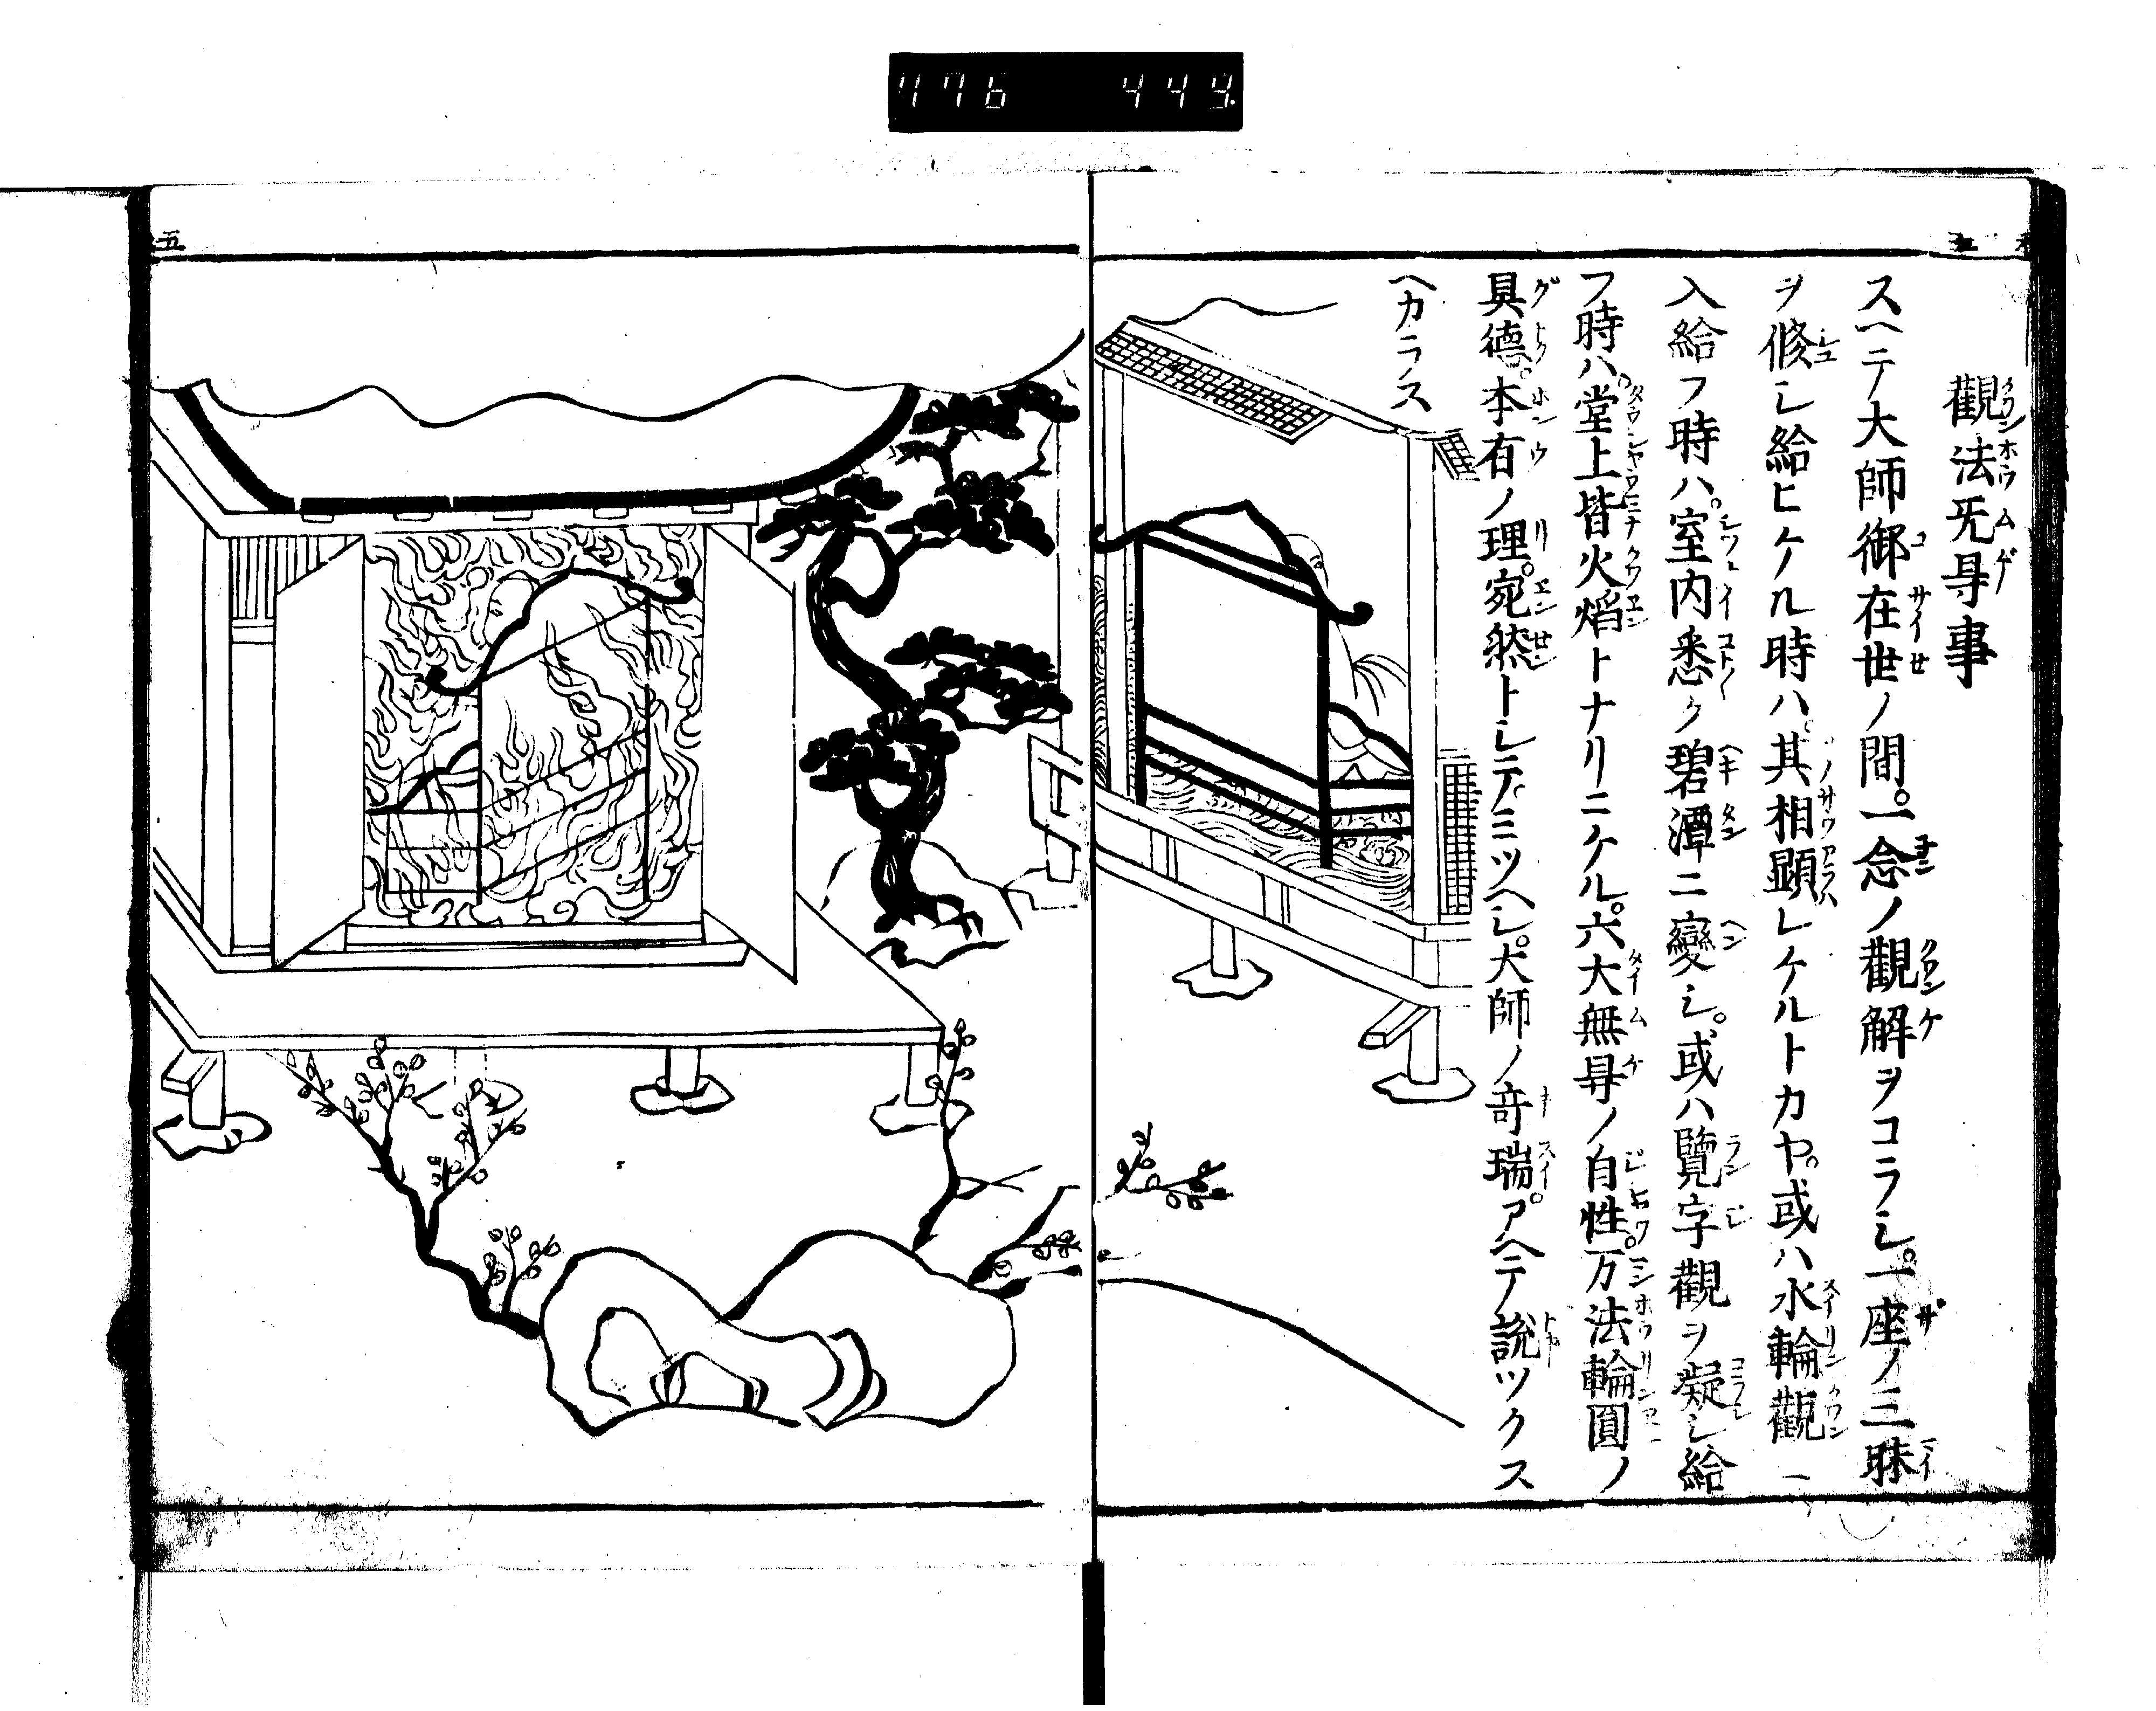 776 449.
觀法旡㝵事
スヘテ大師御在世ノ間。一念ノ觀解ヲコラシ。一座ノ三昧
ヲ修シ給ヒケル時ハ。其相顯レケルトカヤ。或ハ水輪觀ニ
入給フ時ハ。室内悉ク碧潭ニ變シ。或ハ覽字觀ヲ凝シ給
フ時ハ。堂上皆火焰トナリニケル。六大無㝵ノ自性。万法輪圓ノ
具德。本有ノ理。宛然トシテミツヘシ。大師ノ竒瑞。アヘテ說ツクス
ヘカラス
五